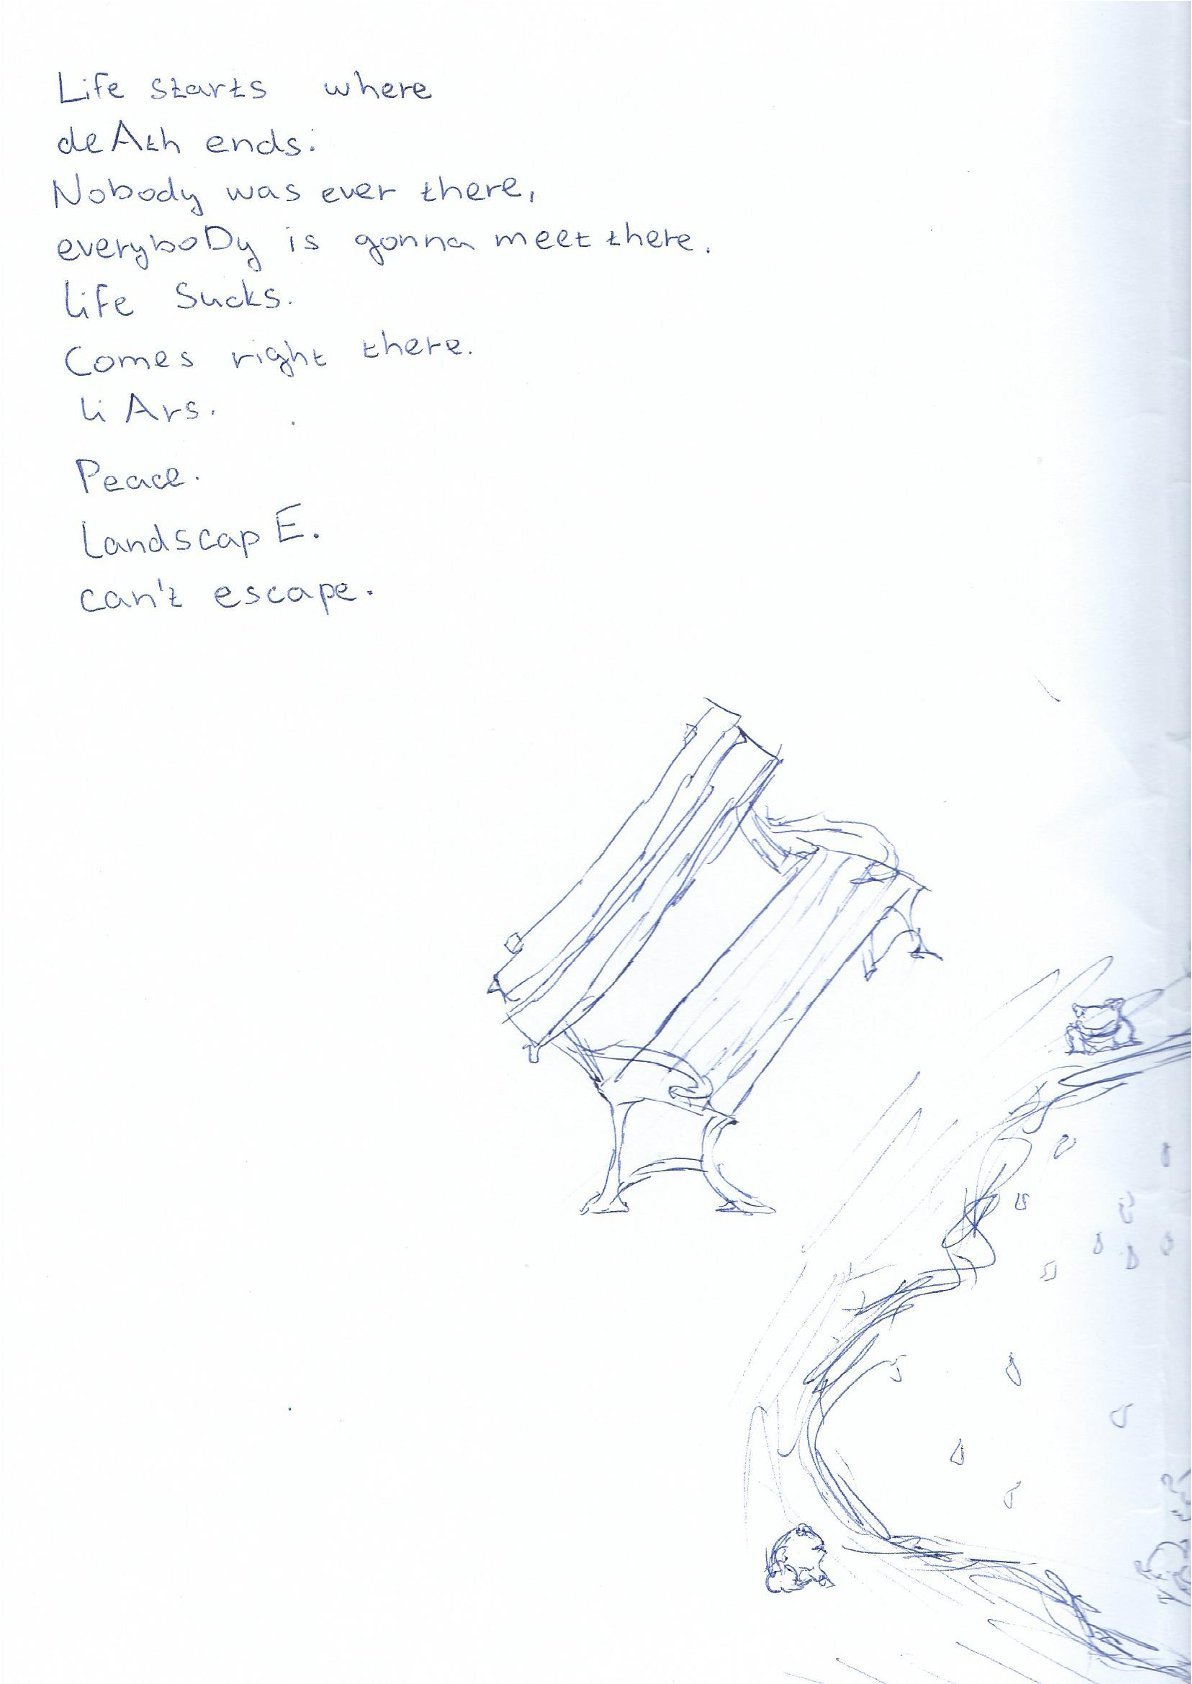 Life starts where
deAth ends.
Nobody was ever there,
everyboDy is gonna meet there.
life sucks.
Comes right there.
liArs.
Peace.
LandscapE.
can't escape.